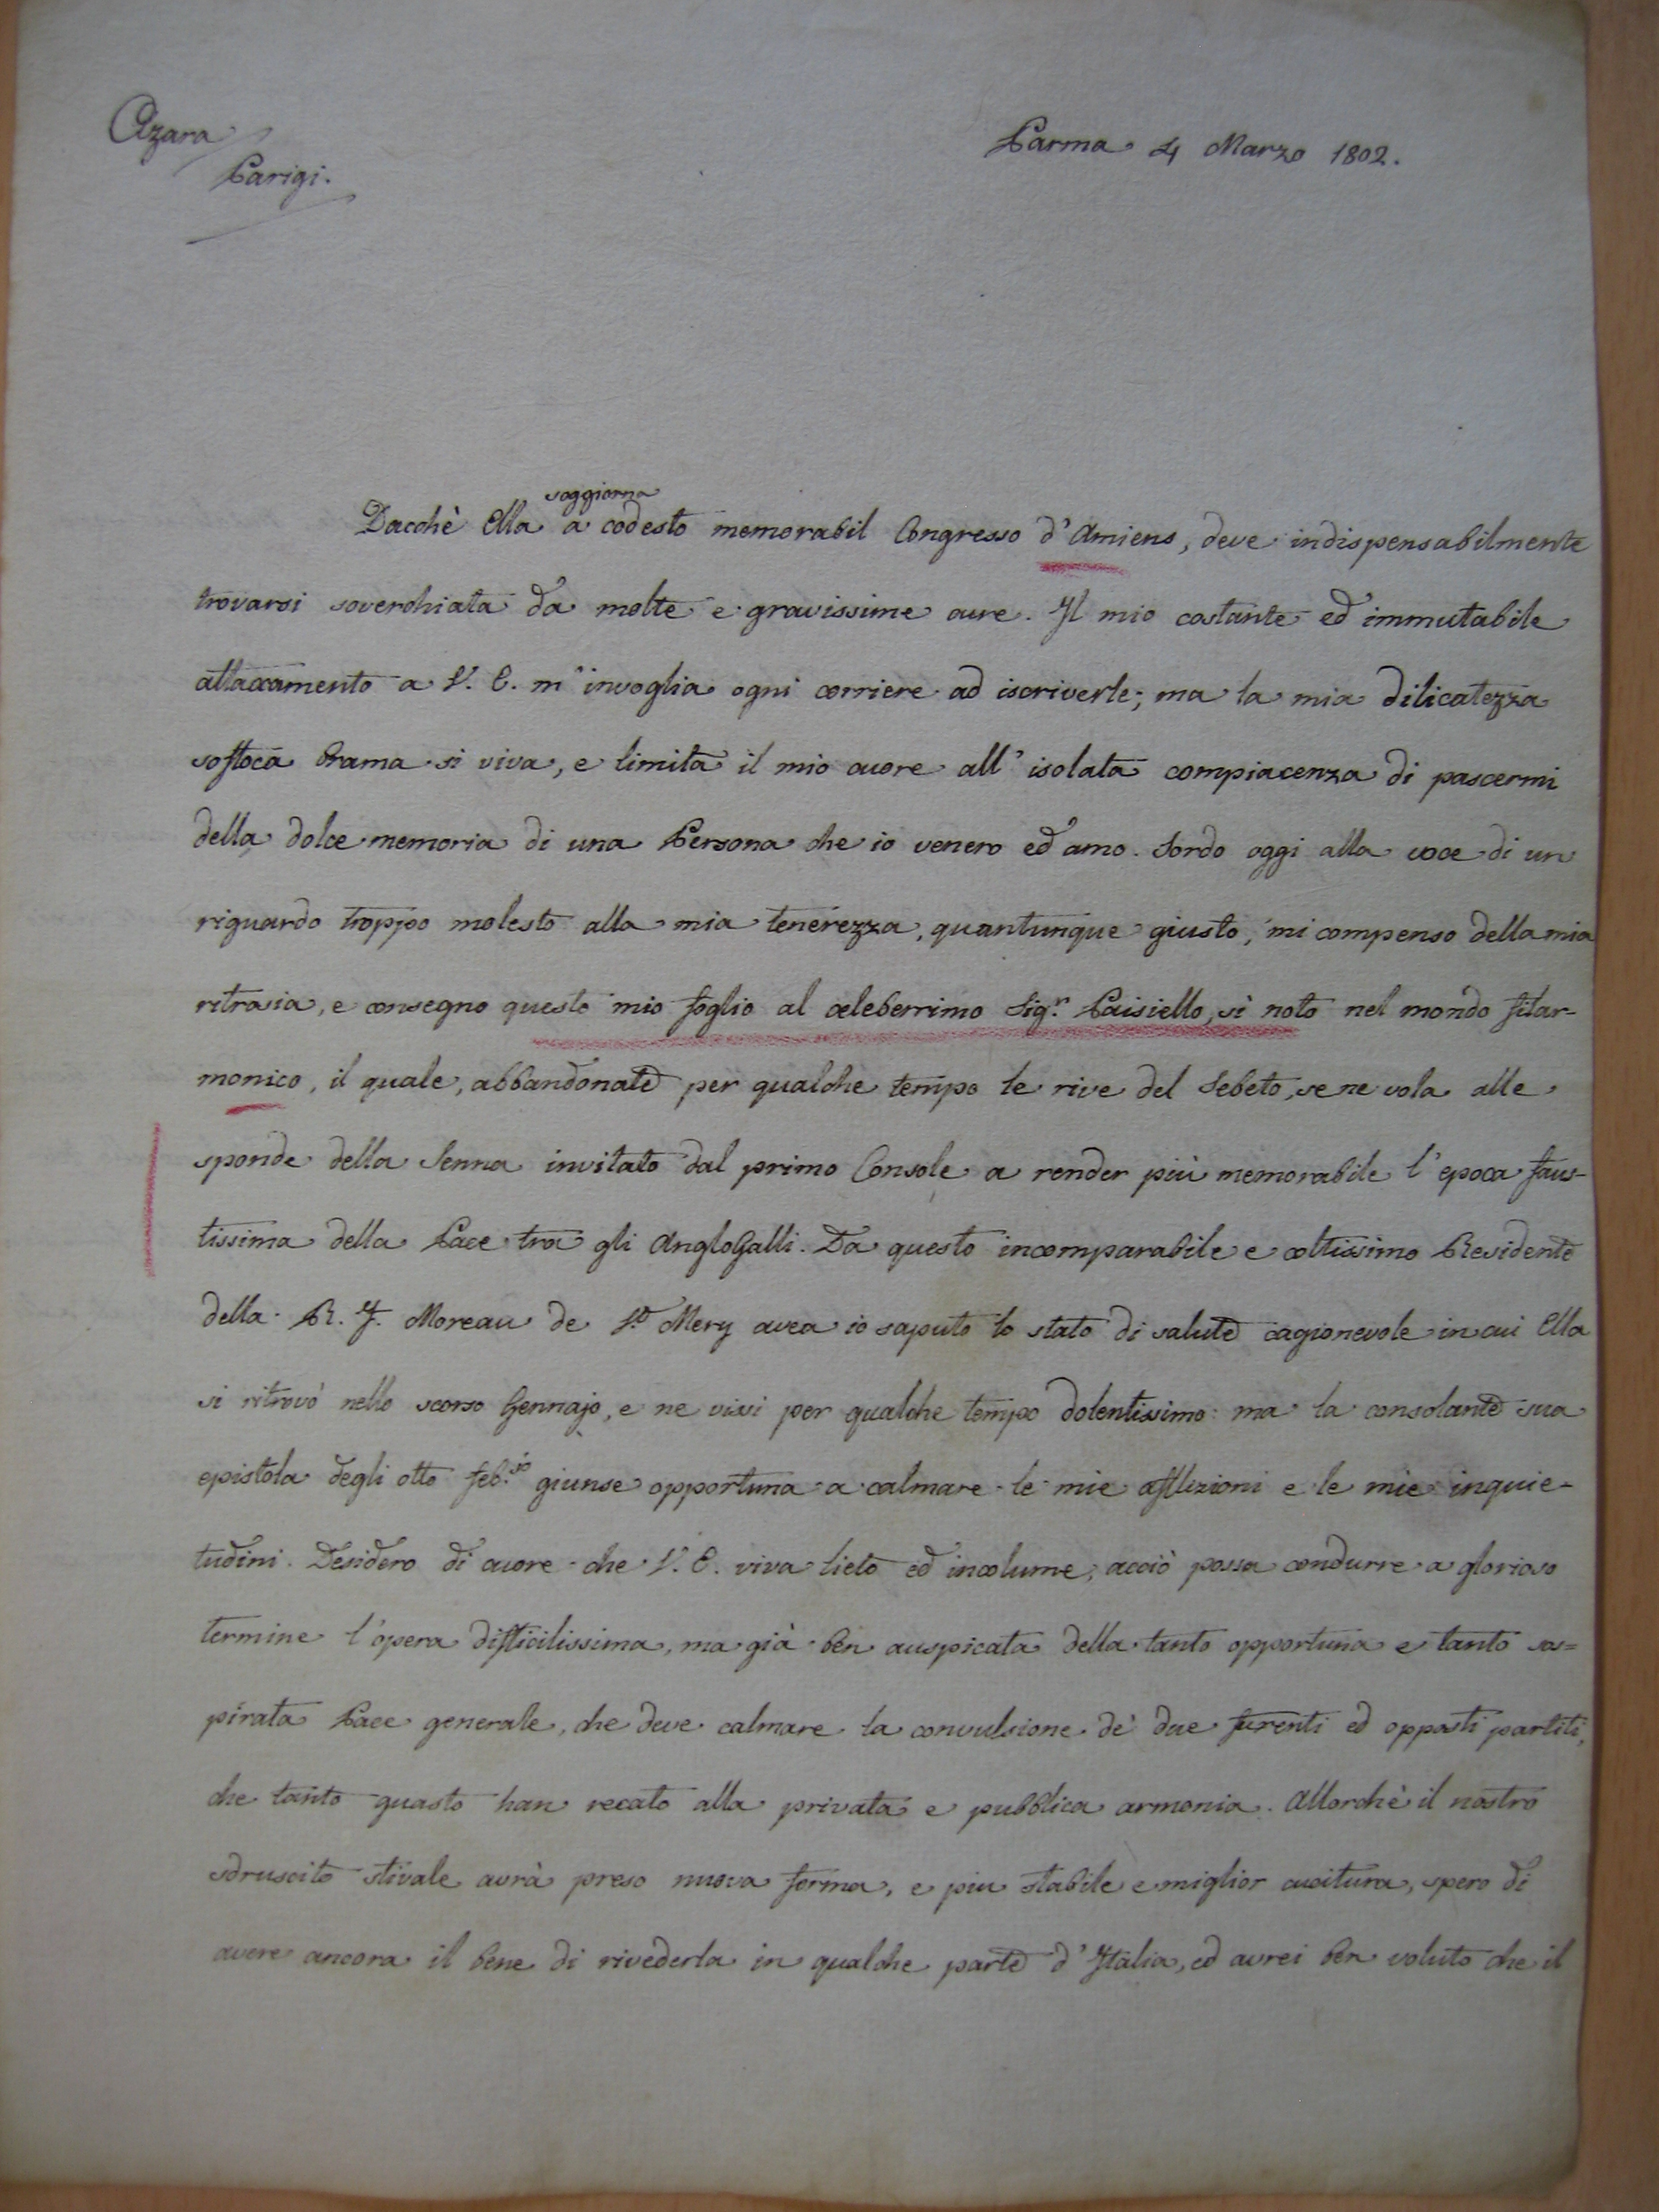 Azara
Parigi.
Parma 4 Marzo 1802.
soggiorna
Dacchè Ella a codesto memorabil Congresso d'Amiens, deve indispensabilmente
trovarsi soverchiata da molte e gravissime cure. Il mio costante ed immutabile
attaccamento a V. E. m'invoglia ogni corriere ad iscriverle; ma la mia dilicatezza
soffoca brama si viva, e limita il mio cuore all'isolata compiacenza di pascermi
della dolce memoria di una Persona che io venero ed amo. Sordo oggi alla voce di un
riguardo troppo molesto alla mia tenerezza, quantunque giusto, mi compenso della mia
ritrosia, e consegno questo mio foglio al celeberrimo Sig.r Paisiello, sì noto nel mondo filar-
monico, il quale, abbandonate per qualche tempo le rive del Sebeto, se ne vola alle
sponde della Senna invitato dal primo Console a render più memorabile l'epoca faus-
tissima della Pace tra gli AngloGalli. Da questo incomparabile e coltissimo Residente
della R. F. Moreau de S.t Mery avea io saputo lo stato di salute cagionevole in cui Ella
si ritrovò nello scorso Gennajo, e ne vissi per qualche tempo dolentissimo: ma la consolante sua
epistola degli otto Feb.jo giunse opportuna a calmare le mie afflizioni e le mie inquie-
tudini. Desidero di cuore che V. E. viva lieto ed incolume, acciò possa condurre a glorioso
termine l'opera difficilissima, ma già ben auspicata della tanto opportuna e tanto sos=
pirata Pace generale, che deve calmare la convulsione de' due furenti ed opposti partiti,
che tanto guasto han recato alla privata e pubblica armonia. Allorchè il nostro
sdruscito stivale avrà preso nuova forma, e piu stabile e miglior cucitura, spero di
avere ancora il bene di rivederla in qualche parte d'Italia, ed avrei ben voluto che il